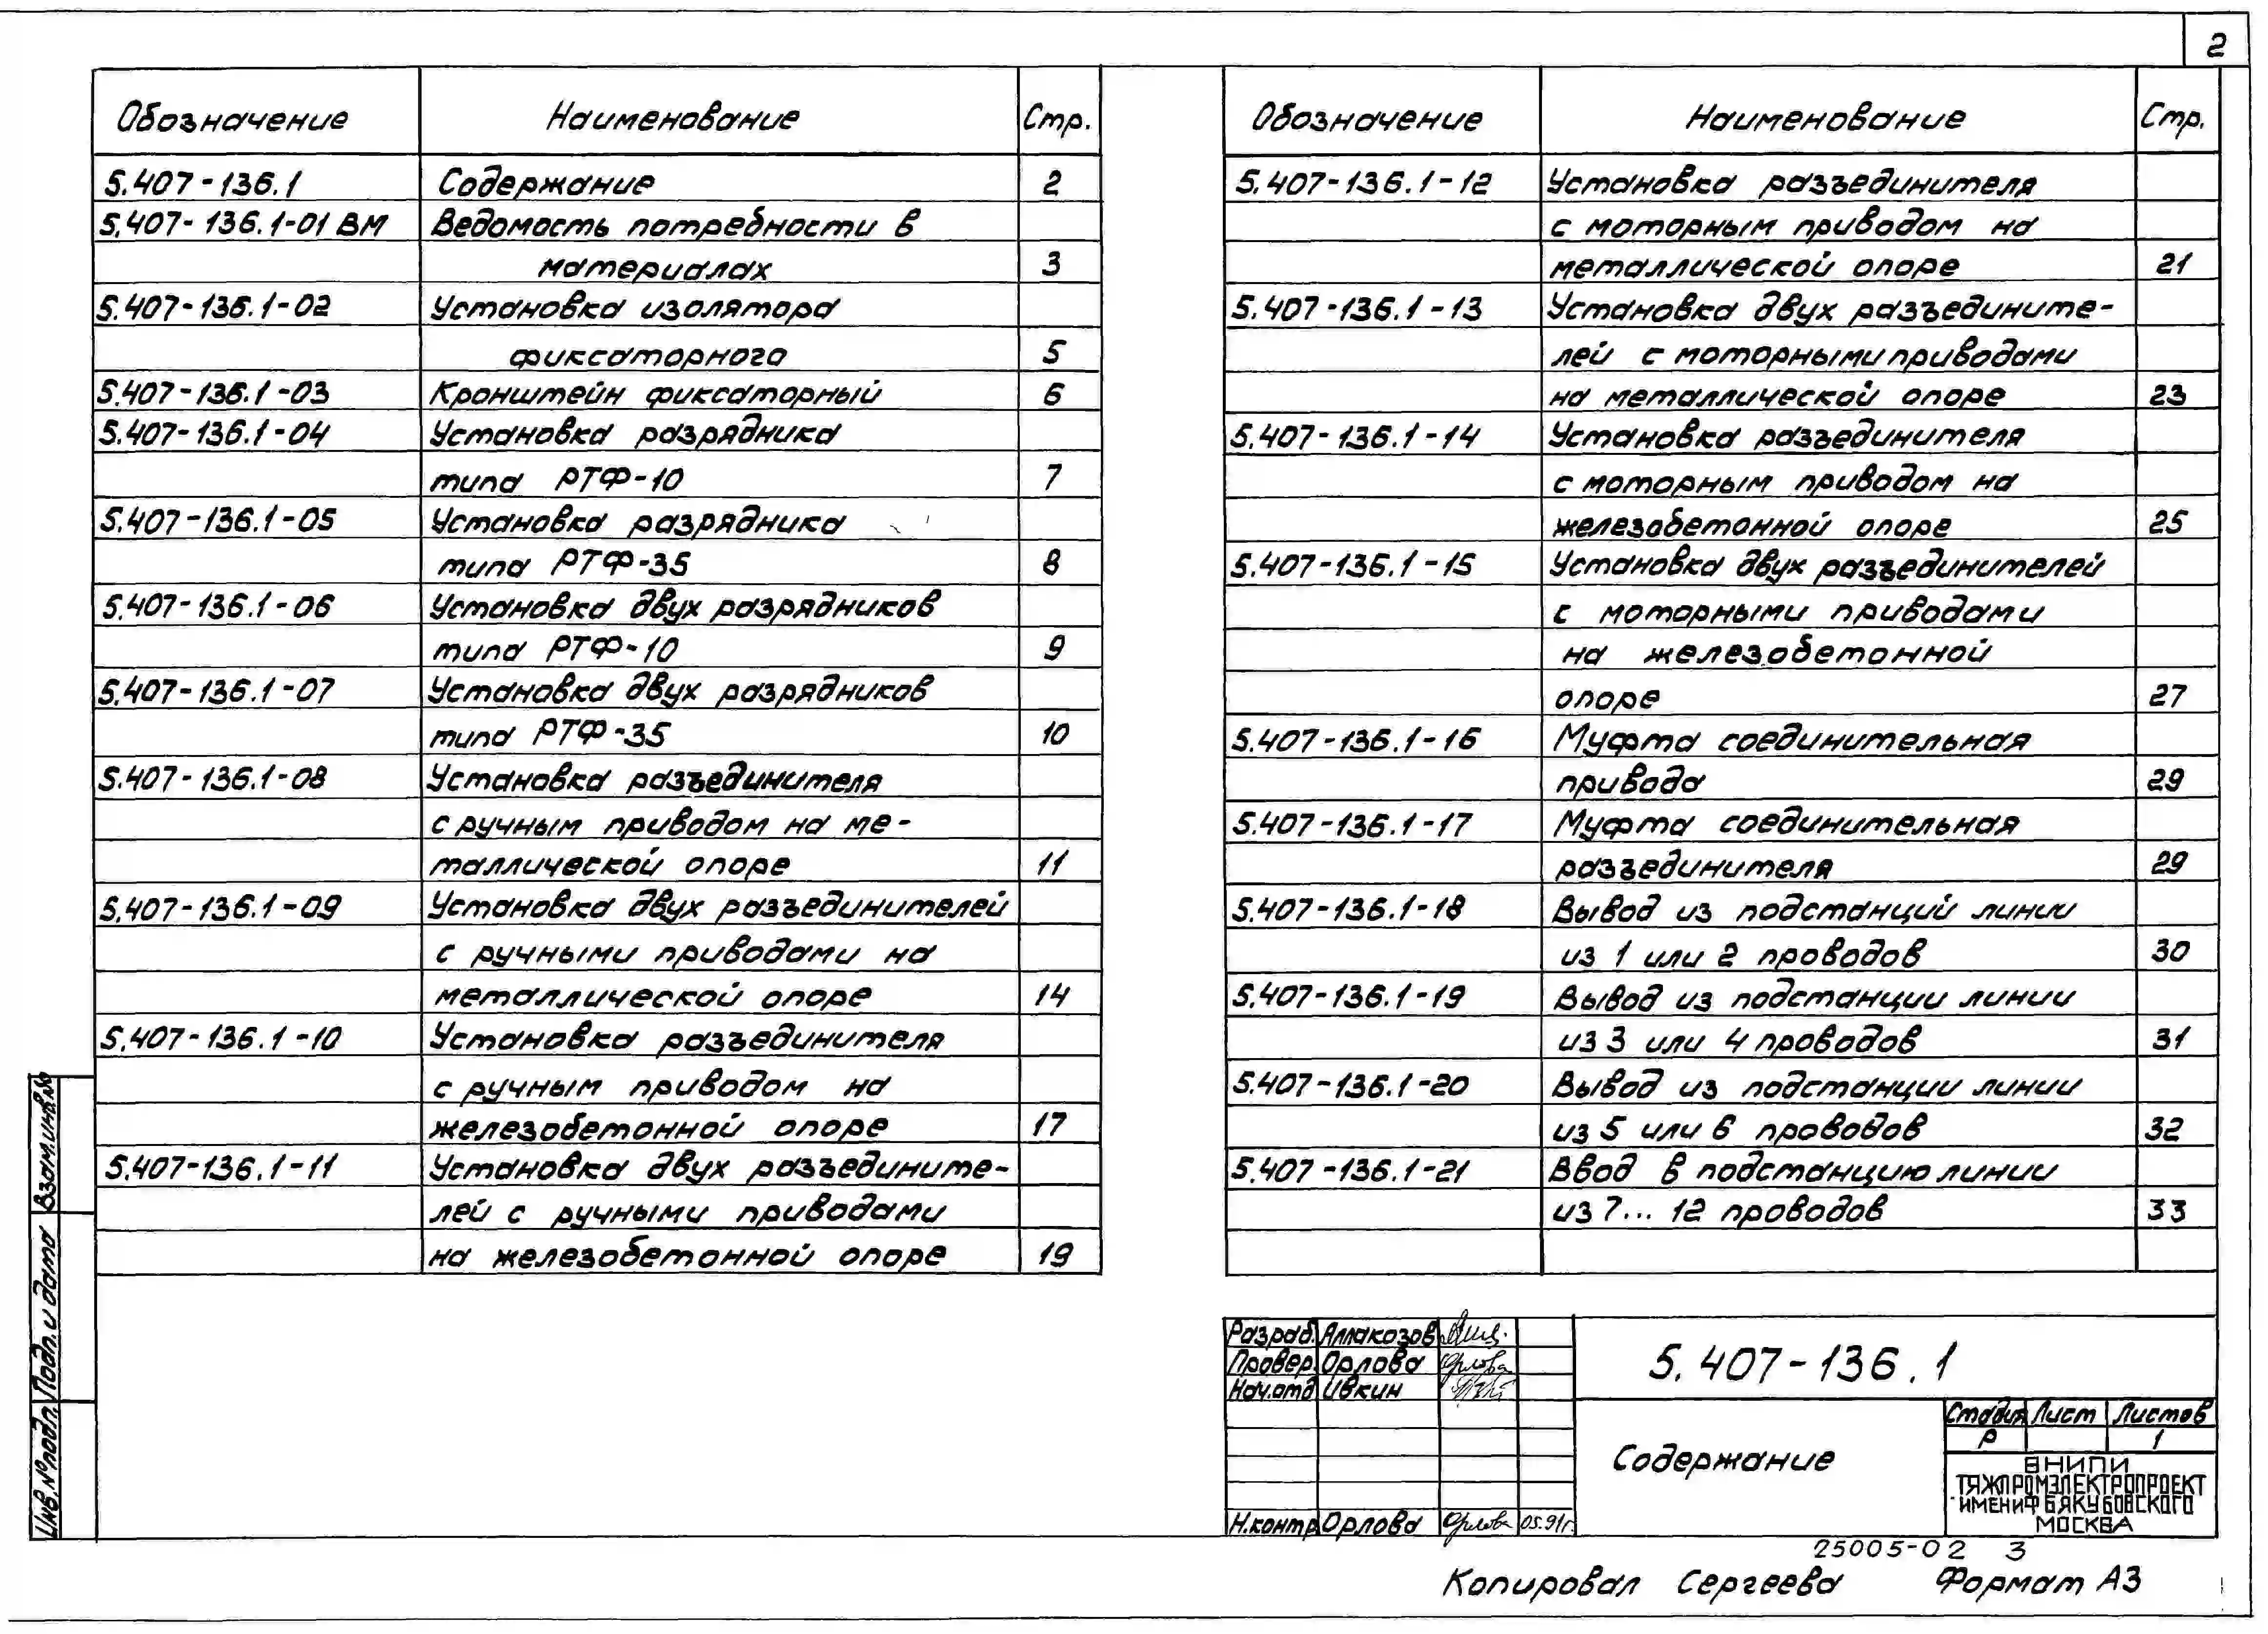 2
Обозначение Наименование Стр.
5.407-136.1 Содержание 2
5.407-136.1-01 ВМ Ведомость потребности в
материалах 3
5.407-136.1-02 Установка изолятора
фиксаторного 5
5.407-136.1-03 Кронштейн фиксаторный 6
5.407-136.1-04 Установка разрядника
типа РТФ-10 7
5.407-136.1-05 Установка разрядника
типа РТФ-35 8
5.407-136.1-06 Установка двух разрядников
типа РТФ-10 9
5.407-136.1-07 Установка двух разрядников
типа РТФ-35 10
5.407-136.1-08 Установка разъединителя
с ручным приводом на ме-
таллической опоре 11
5.407-136.1-09 Установка двух разъединителей
с ручными приводами на
металлической опоре 14
5.407-136.1-10 Установка разъединителя
с ручным приводом на
железобетонной опоре 17
5.407-136.1-11 Установка двух разъедините-
лей с ручными приводами
на железобетонной опоре 19
Обозначение Наименование Стр.
5.407-136.1-12 Установка разъединителя
с моторным приводом на
металлической опоре 21
5.407-136.1-13 Установка двух разъедините-
лей с моторными приводами
на металлической опоре 23
5.407-136.1-14 Установка разъединителя
с моторным приводом на
железобетонной опоре 25
5.407-136.1-15 Установка двух разъединителей
с моторными приводами
на железобетонной
опоре 27
5.407-136.1-16 Муфта соединительная
привода 29
5.407-136.1-17 Муфта соединительная
разъединителя 29
5.407-136.1-18 Вывод из подстанций линии
из 1 или 2 проводов 30
5.407-136.1-19 Вывод из подстанции линии
из 3 или 4 проводов 31
5.407-136.1-20 Вывод из подстанции линии
из 5 или 6 проводов 32
5.407-136.1-21 Ввод в подстанцию линии
из 7... 12 проводов 33
Взам.инв.№
Подп. и дата
Инв.№подл.
Разраб. Аллакозов
Провер. Орлова Орлова
Нач.отд Ивкин
Н.контр Орлова Орлова 05.91г.
5.407-136.1
Содержание
Стадия Лист Листов
Р 1
ВНИПИ
ТЯЖПРОМЭЛЕКТРОПРОЕКТ
ИМЕНИ Ф Б ЯКУБОВСКОГО
МОСКВА
25005-02 3
Копировал Сергеева Формат А3